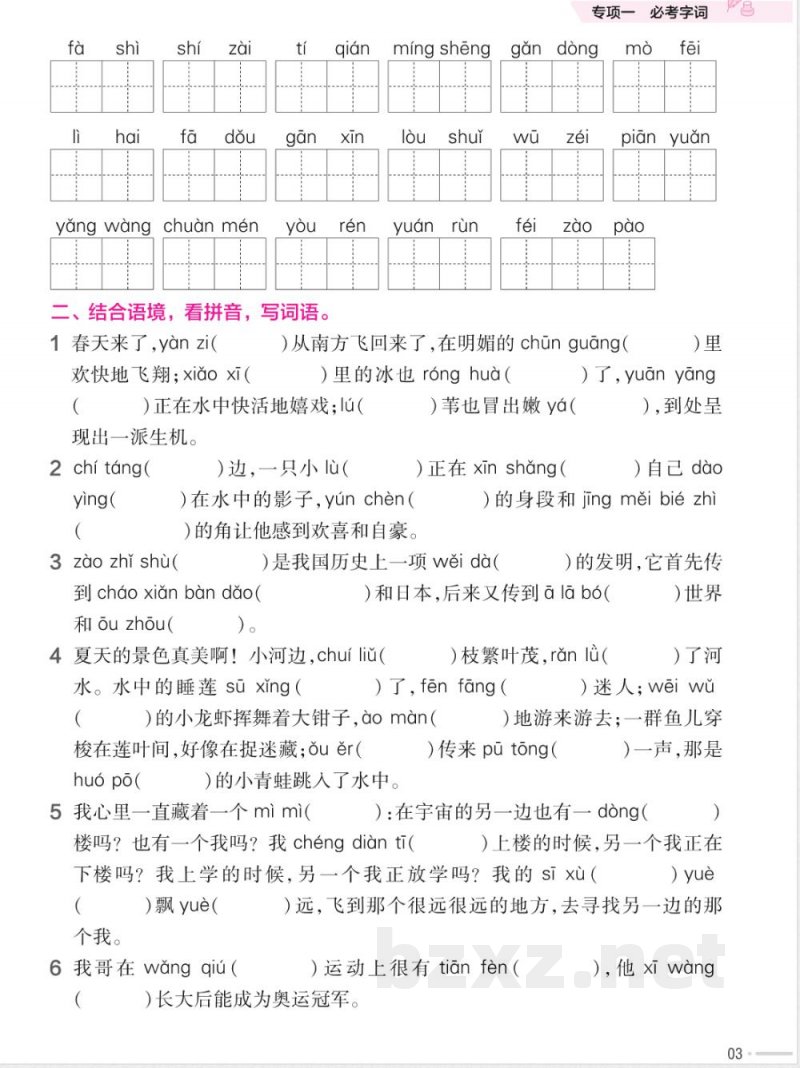 专项一 必考字词
fà shì shí zài tí qián míng shēng gǎn dòng mò fēi
lì hai fā dǒu gān xīn lòu shuǐ wū zéi piān yuǎn
yǎng wàng chuàn mén yòu rén yuán rùn féi zào pào
二、结合语境，看拼音，写词语。
1 春天来了,yàn zi( )从南方飞回来了,在明媚的 chūn guāng( )里
欢快地飞翔;xiǎo xī( )里的冰也 róng huà( )了,yuān yāng
( )正在水中快活地嬉戏;lú( )苇也冒出嫩 yá( ),到处呈
现出一派生机。
2 chí táng( )边,一只小 lù( )正在 xīn shǎng( )自己 dào
yìng( )在水中的影子,yún chèn( )的身段和 jīng měi bié zhì
( )的角让他感到欢喜和自豪。
3 zào zhǐ shù( )是我国历史上一项 wěi dà( )的发明,它首先传
到 cháo xiǎn bàn dǎo( )和日本,后来又传到 ā lā bó( )世界
和 ōu zhōu( )。
4 夏天的景色真美啊！小河边,chuí liǔ( )枝繁叶茂,rǎn lǜ( )了河
水。水中的睡莲 sū xǐng( )了,fēn fāng( )迷人;wēi wǔ
( )的小龙虾挥舞着大钳子,ào màn( )地游来游去;一群鱼儿穿
梭在莲叶间,好像在捉迷藏;ǒu ěr( )传来 pū tōng( )一声,那是
huó pō( )的小青蛙跳入了水中。
5 我心里一直藏着一个 mì mì( ):在宇宙的另一边也有一 dòng( )
楼吗？也有一个我吗？我 chéng diàn tī( )上楼的时候,另一个我正在
下楼吗？我上学的时候,另一个我正放学吗？我的 sī xù( )yuè
( )飘 yuè( )远,飞到那个很远很远的地方,去寻找另一边的那
个我。
6 我哥在 wǎng qiú( )运动上很有 tiān fèn( ),他 xī wàng
( )长大后能成为奥运冠军。
bzxz.net
03